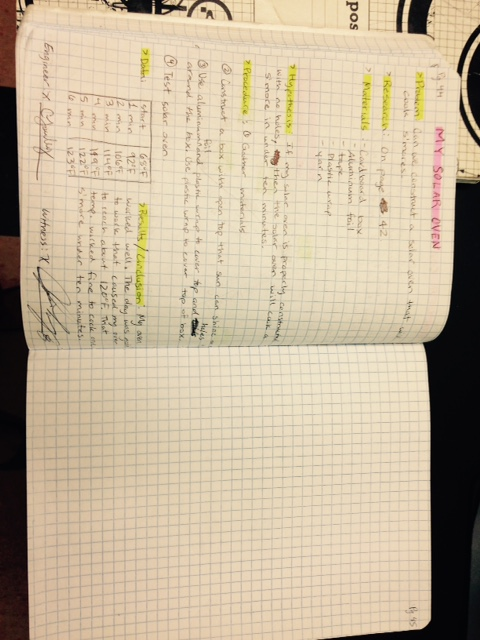 Pg 44
MY SOLAR OVEN
> Problem: Can we construct a solar oven that will
cook s'mores?
> Research: On page 42
> Materials: - Cardboard box
- Aluminum foil
- tape
- plastic wrap
- yarn
> Hypothesis: If my solar oven is properly
with no holes, then the solar oven will cook a
s'more in under ten minutes.
> Procedure: ① Gather materials
② Construct a box with open top that sun can shine
③ Use aluminum foil and plastic wrap to cover top and holes
around the box. Use plastic wrap to cover top of box
④ Test solar oven
> Data:
start 65°F
1 min 92°F
2 min 106°F
3 min 114°F
4 min 119°F
5 min 122°F
6 min 123°F
> Results/Conclusion: My oven
worked well. The day was
to work that caused my
to reach about 120°F. That
temp. worked fine to cook
s'more under ten minutes.
Engineer: X
witness: X
Pg 45
pos